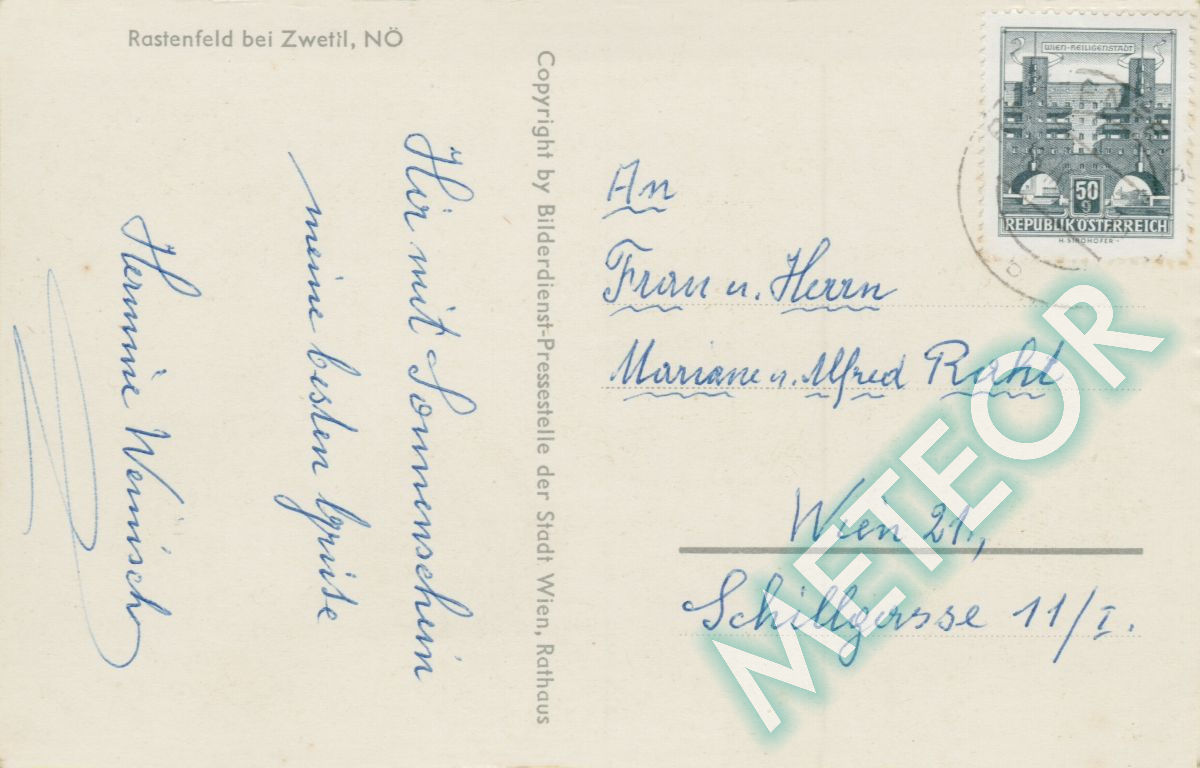 Rastenfeld bei Zwetil, NÖ
Hier mit Sonnenschein
meine besten Grüße
Hermine Wenisch
Copyright by Bilderdienst-Pressestelle der Stadt Wien, Rathaus
WIEN-HEILIGENSTADT
50
g
REPUBLIK ÖSTERREICH
An
Frau u. Herrn
Mariane u. Alfred Rahl
Wien 21,
Schillgasse 11/I.
METEOR